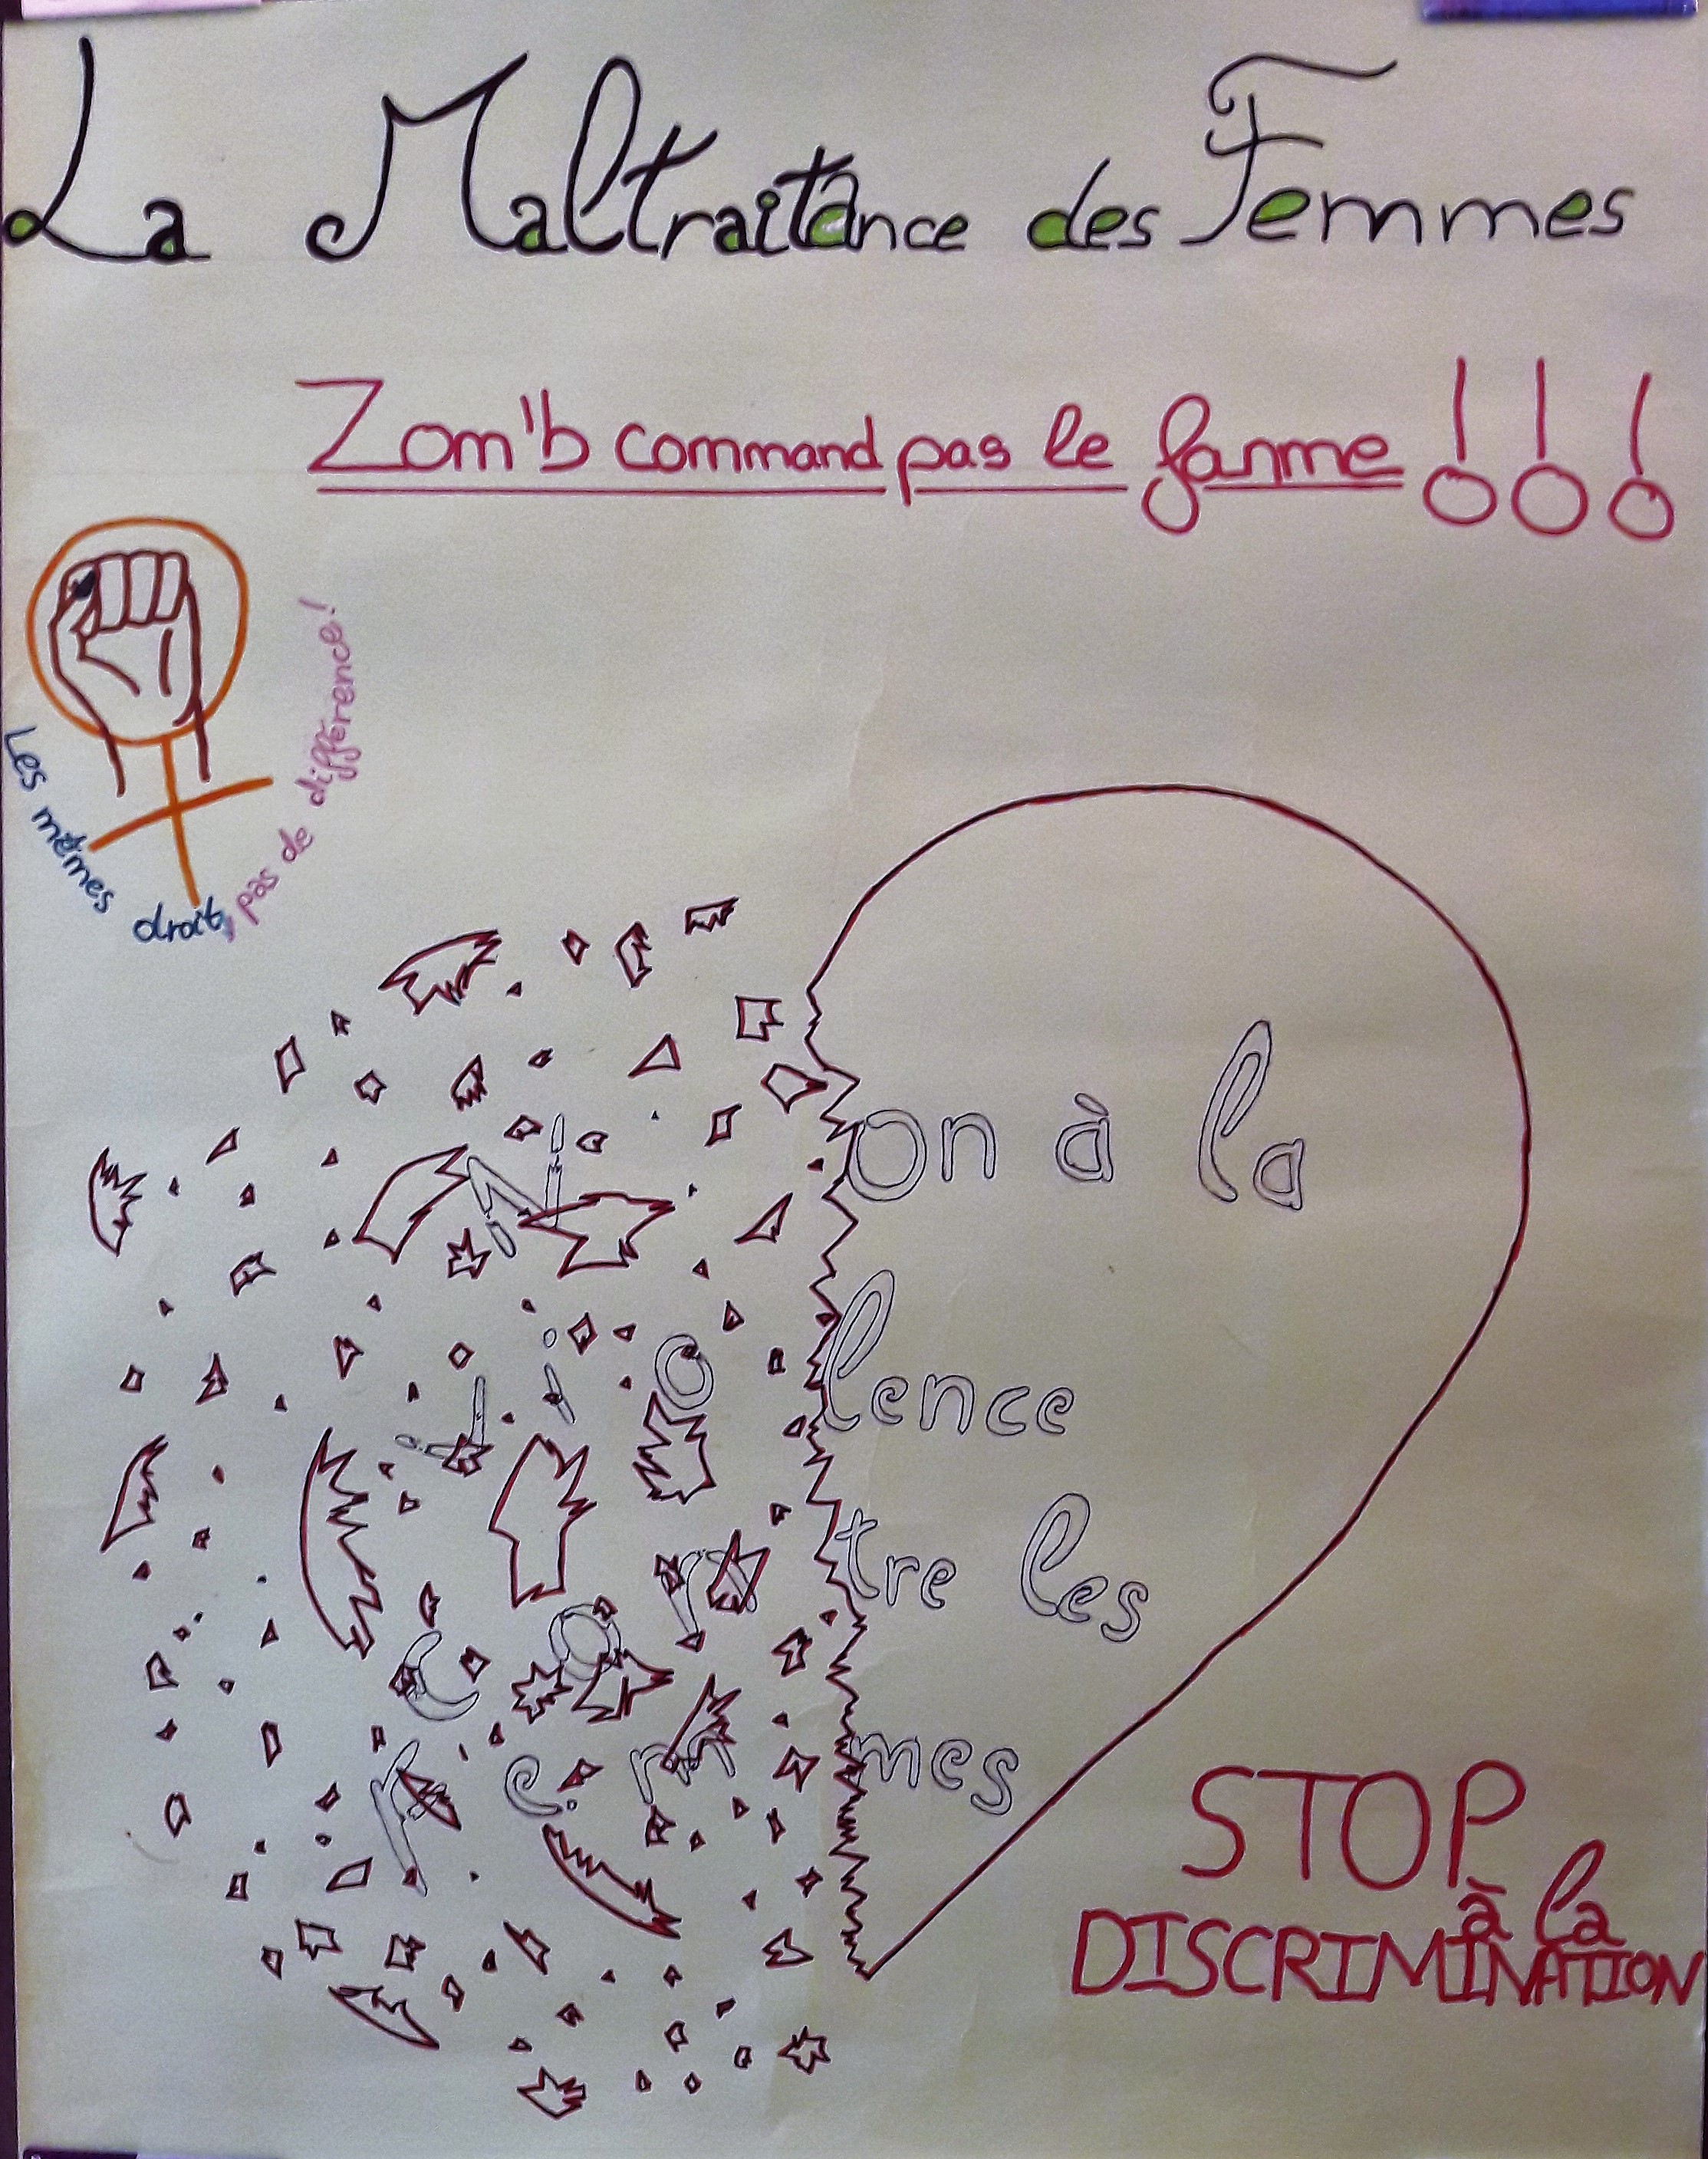 La Maltraitance des Femmes
Zom'b command pas le fanme !!!
Les mêmes droit, pas de différence!
Non à la
violence
contre les
femmes
STOP
à la
DISCRIMINATION